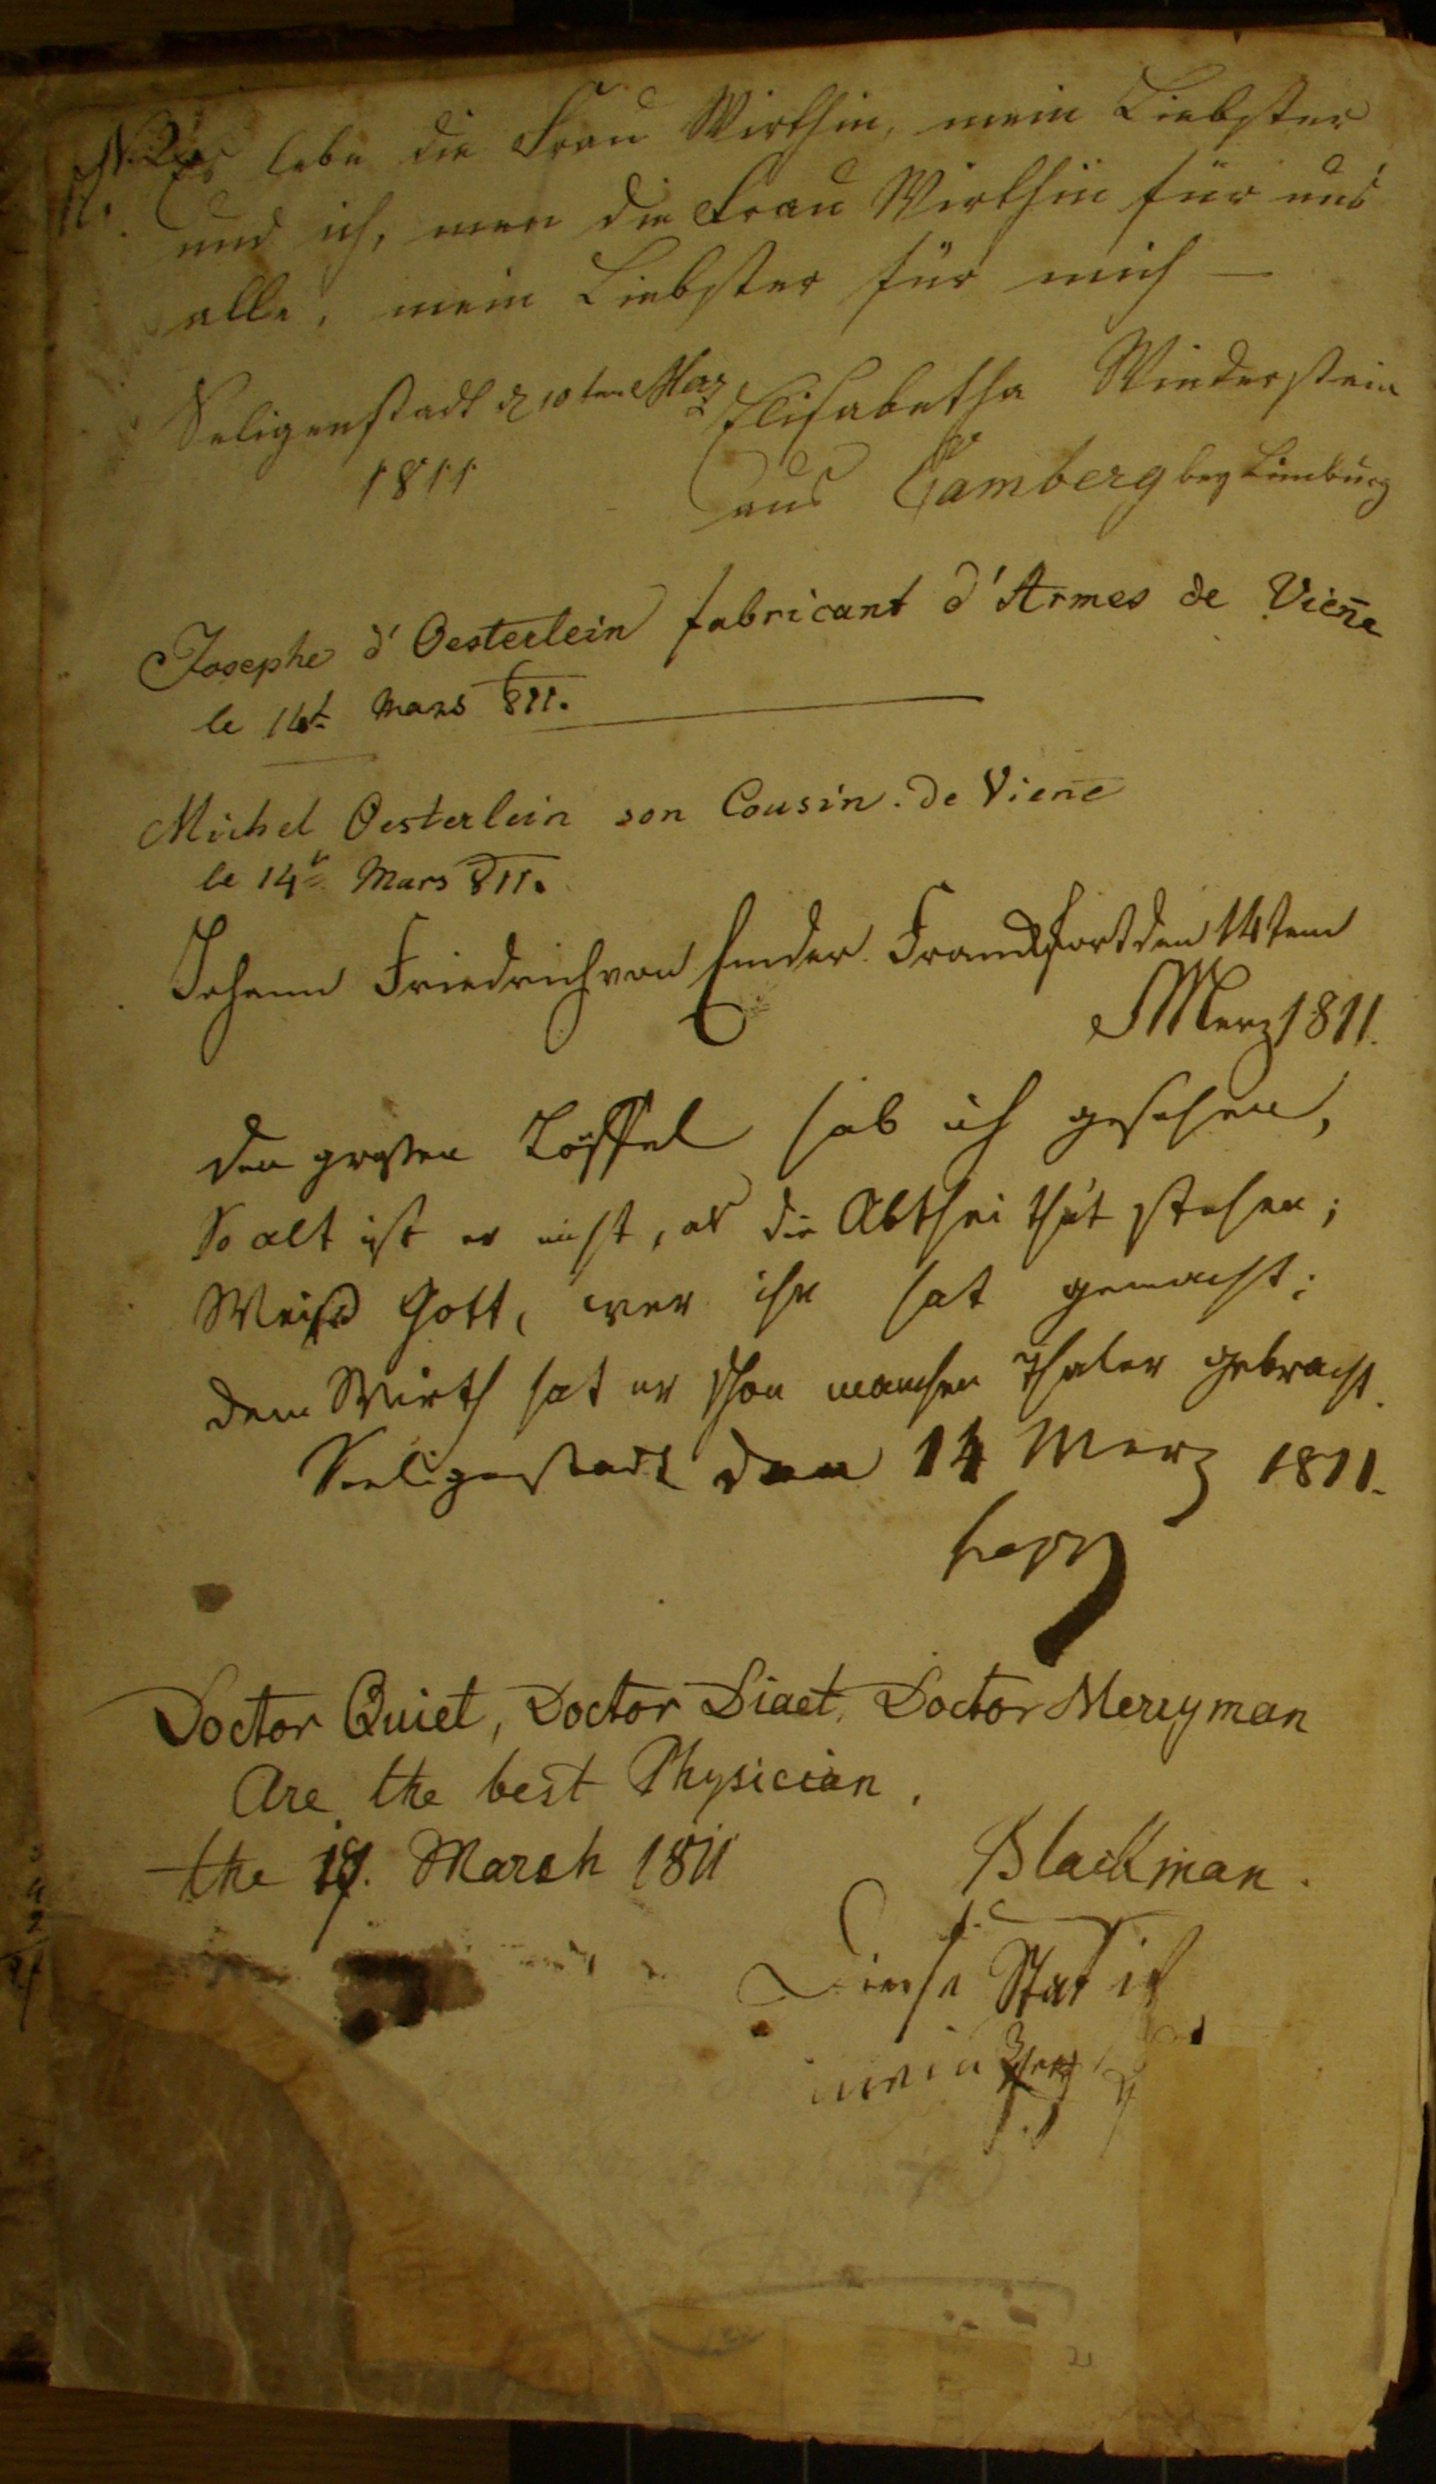 Es lebe die Frau Wirthin, mein Liebster
und ich, die Frau Wirthin für uns
alle, mein Liebster für mich —
Seligenstadt d 10ten Merz Elisabetha Winderstein
1811 aus Camberg bey Limburg
Josephe d'Oesterlein fabricant d'Armes de Vieñe
le 14t Mars 811.
Michel Oesterlein son Cousin. de Vieñe
le 14t Mars 811.
Johann Friedrich von Ender Franckfort den 14tem
Merz 1811.
den grosen Löffel hab ich gesehen,
So alt ist er nicht, als die Abthei thut stehen;
Weiß Gott, wer ihn hat gemacht;
dem Wirth hat er schon manchen Thaler gebracht.
Seeligenstadt den 14 Merz 1811.
Doctor Quiet, Doctor Diaet, Doctor Merryman
Are the best Physician.
the 19. March 1811 Blackman.
Diese Stat ist
mein